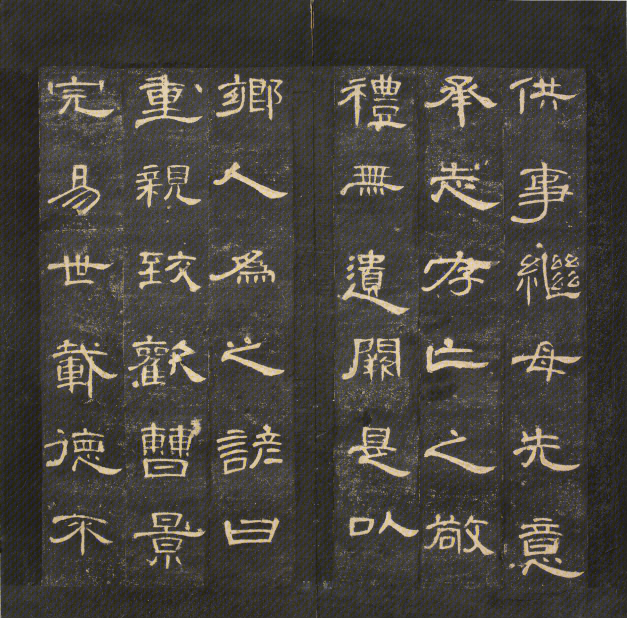 供事繼母先意
承志存亡之敬
禮無遺闕是以
鄉人爲之諺曰
重親致歡曹景
完易世載德不